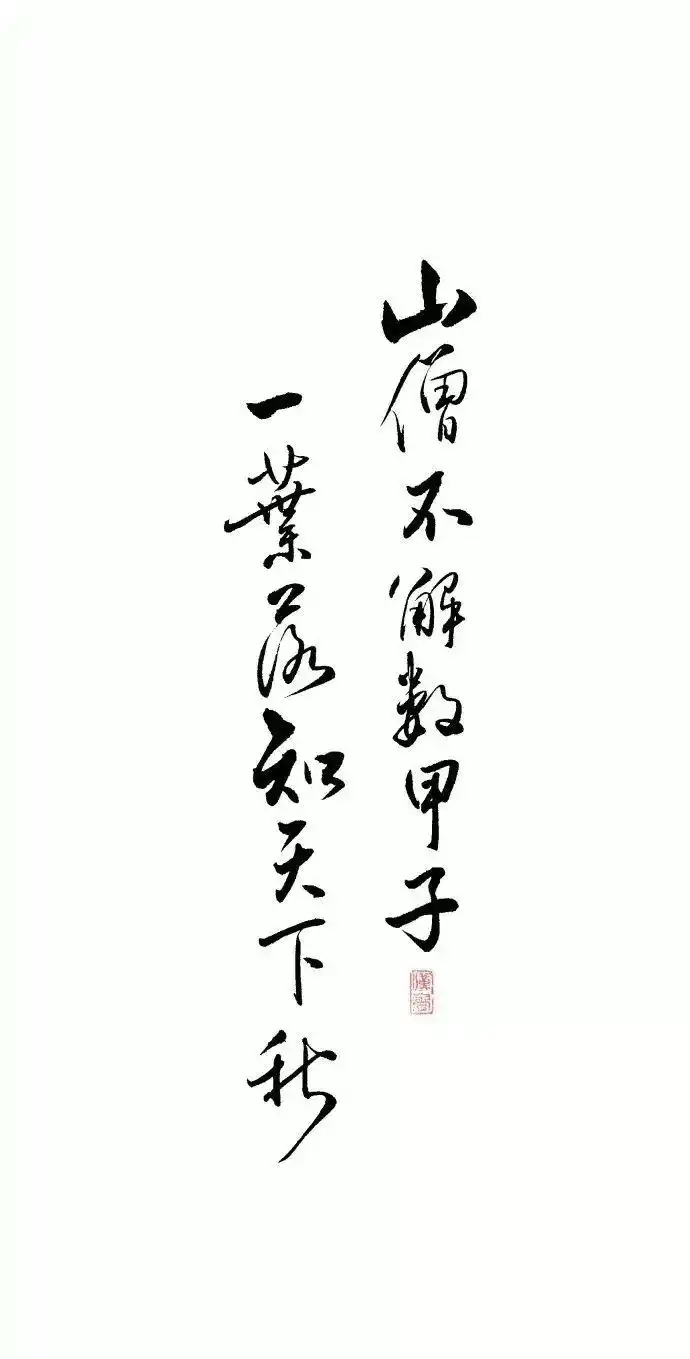 山僧不解数甲子
一葉落知天下秋